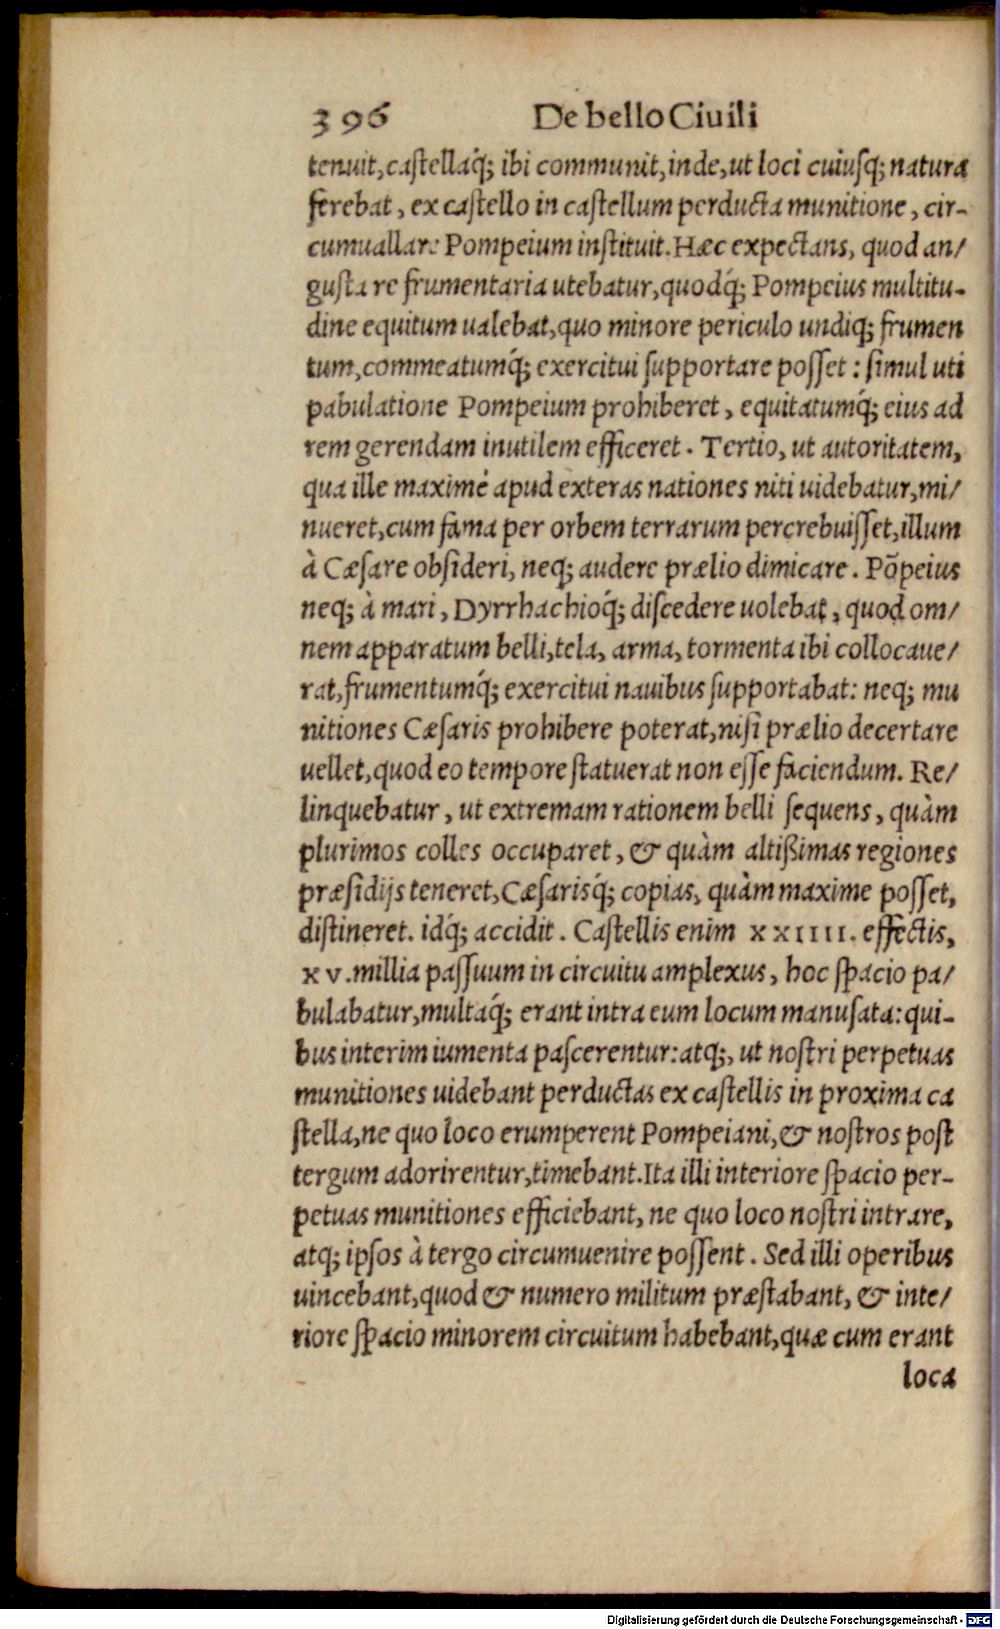 396 De bello Ciuili
tenuit, castellaq́; ibi communit, inde, ut loci cuiusq; natura
ferebat, ex castello in castellum perducta munitione, cir-
cumuallare Pompeium instituit. Hæc expectans, quod an/
gusta re frumentaria utebatur, quodq́; Pompeius multitu-
dine equitum ualebat, quo minore periculo undiq; frumen
tum, commeatumq́; exercitui supportare posset: simul uti
pabulatione Pompeium prohiberet, equitatumq́; eius ad
rem gerendam inutilem efficeret. Tertio, ut autoritatem,
qua ille maximè apud exteras nationes niti uidebatur, mi/
nueret, cum fama per orbem terrarum percrebuisset, illum
à Cæsare obsideri, neq; audere prælio dimicare. Põpeius
neq; à mari, Dyrrhachioq́; discedere uolebat, quod om/
nem apparatum belli, tela, arma, tormenta ibi collocaue/
rat, frumentumq́; exercitui nauibus supportabat: neq; mu
nitiones Cæsaris prohibere poterat, nisi prælio decertare
uellet, quod eo tempore statuerat non esse faciendum. Re/
linquebatur, ut extremam rationem belli sequens, quàm
plurimos colles occuparet, & quàm altißimas regiones
præsidijs teneret, Cæsarisq́; copias, quàm maxime posset,
distineret. idq́; accidit. Castellis enim XXIIII. effectis,
XV. millia passuum in circuitu amplexus, hoc spacio pa/
bulabatur, multaq́; erant intra eum locum manusata: qui-
bus interim iumenta pascerentur: atq;, ut nostri perpetuas
munitiones uidebant perductas ex castellis in proxima ca
stella, ne quo loco erumperent Pompeiani, & nostros post
tergum adorirentur, timebant. Ita illi interiore spacio per-
petuas munitiones efficiebant, ne quo loco nostri intrare,
atq; ipsos à tergo circumuenire possent. Sed illi operibus
uincebant, quod & numero militum præstabant, & inte/
riore spacio minorem circuitum habebant, quæ cum erant
loca
Digitalisierung gefördert durch die Deutsche Forschungsgemeinschaft - DFG